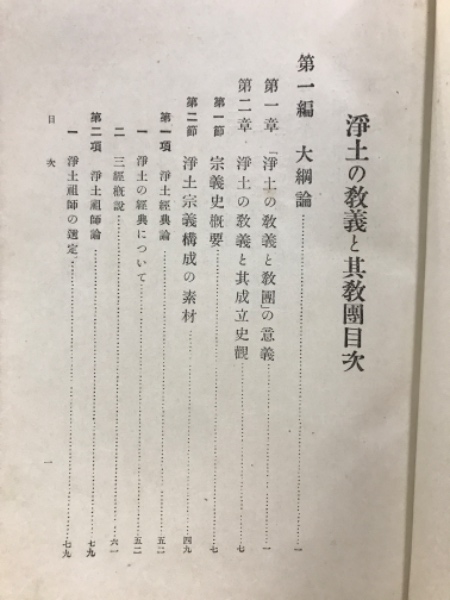 淨土の敎義と其敎團目次
第一編 大綱論……一
第一章 「淨土の敎義と敎團」の意義……一
第二章 淨土の敎義と其成立史觀……七
第一節 宗義史槪要……七
第二節 淨土宗義構成の素材……四九
第一項 淨土經典論……五二
一 淨土の經典について……五二
二 三經槪說……六一
第二項 淨土祖師論……七九
一 淨土祖師の選定……七九
目次
一